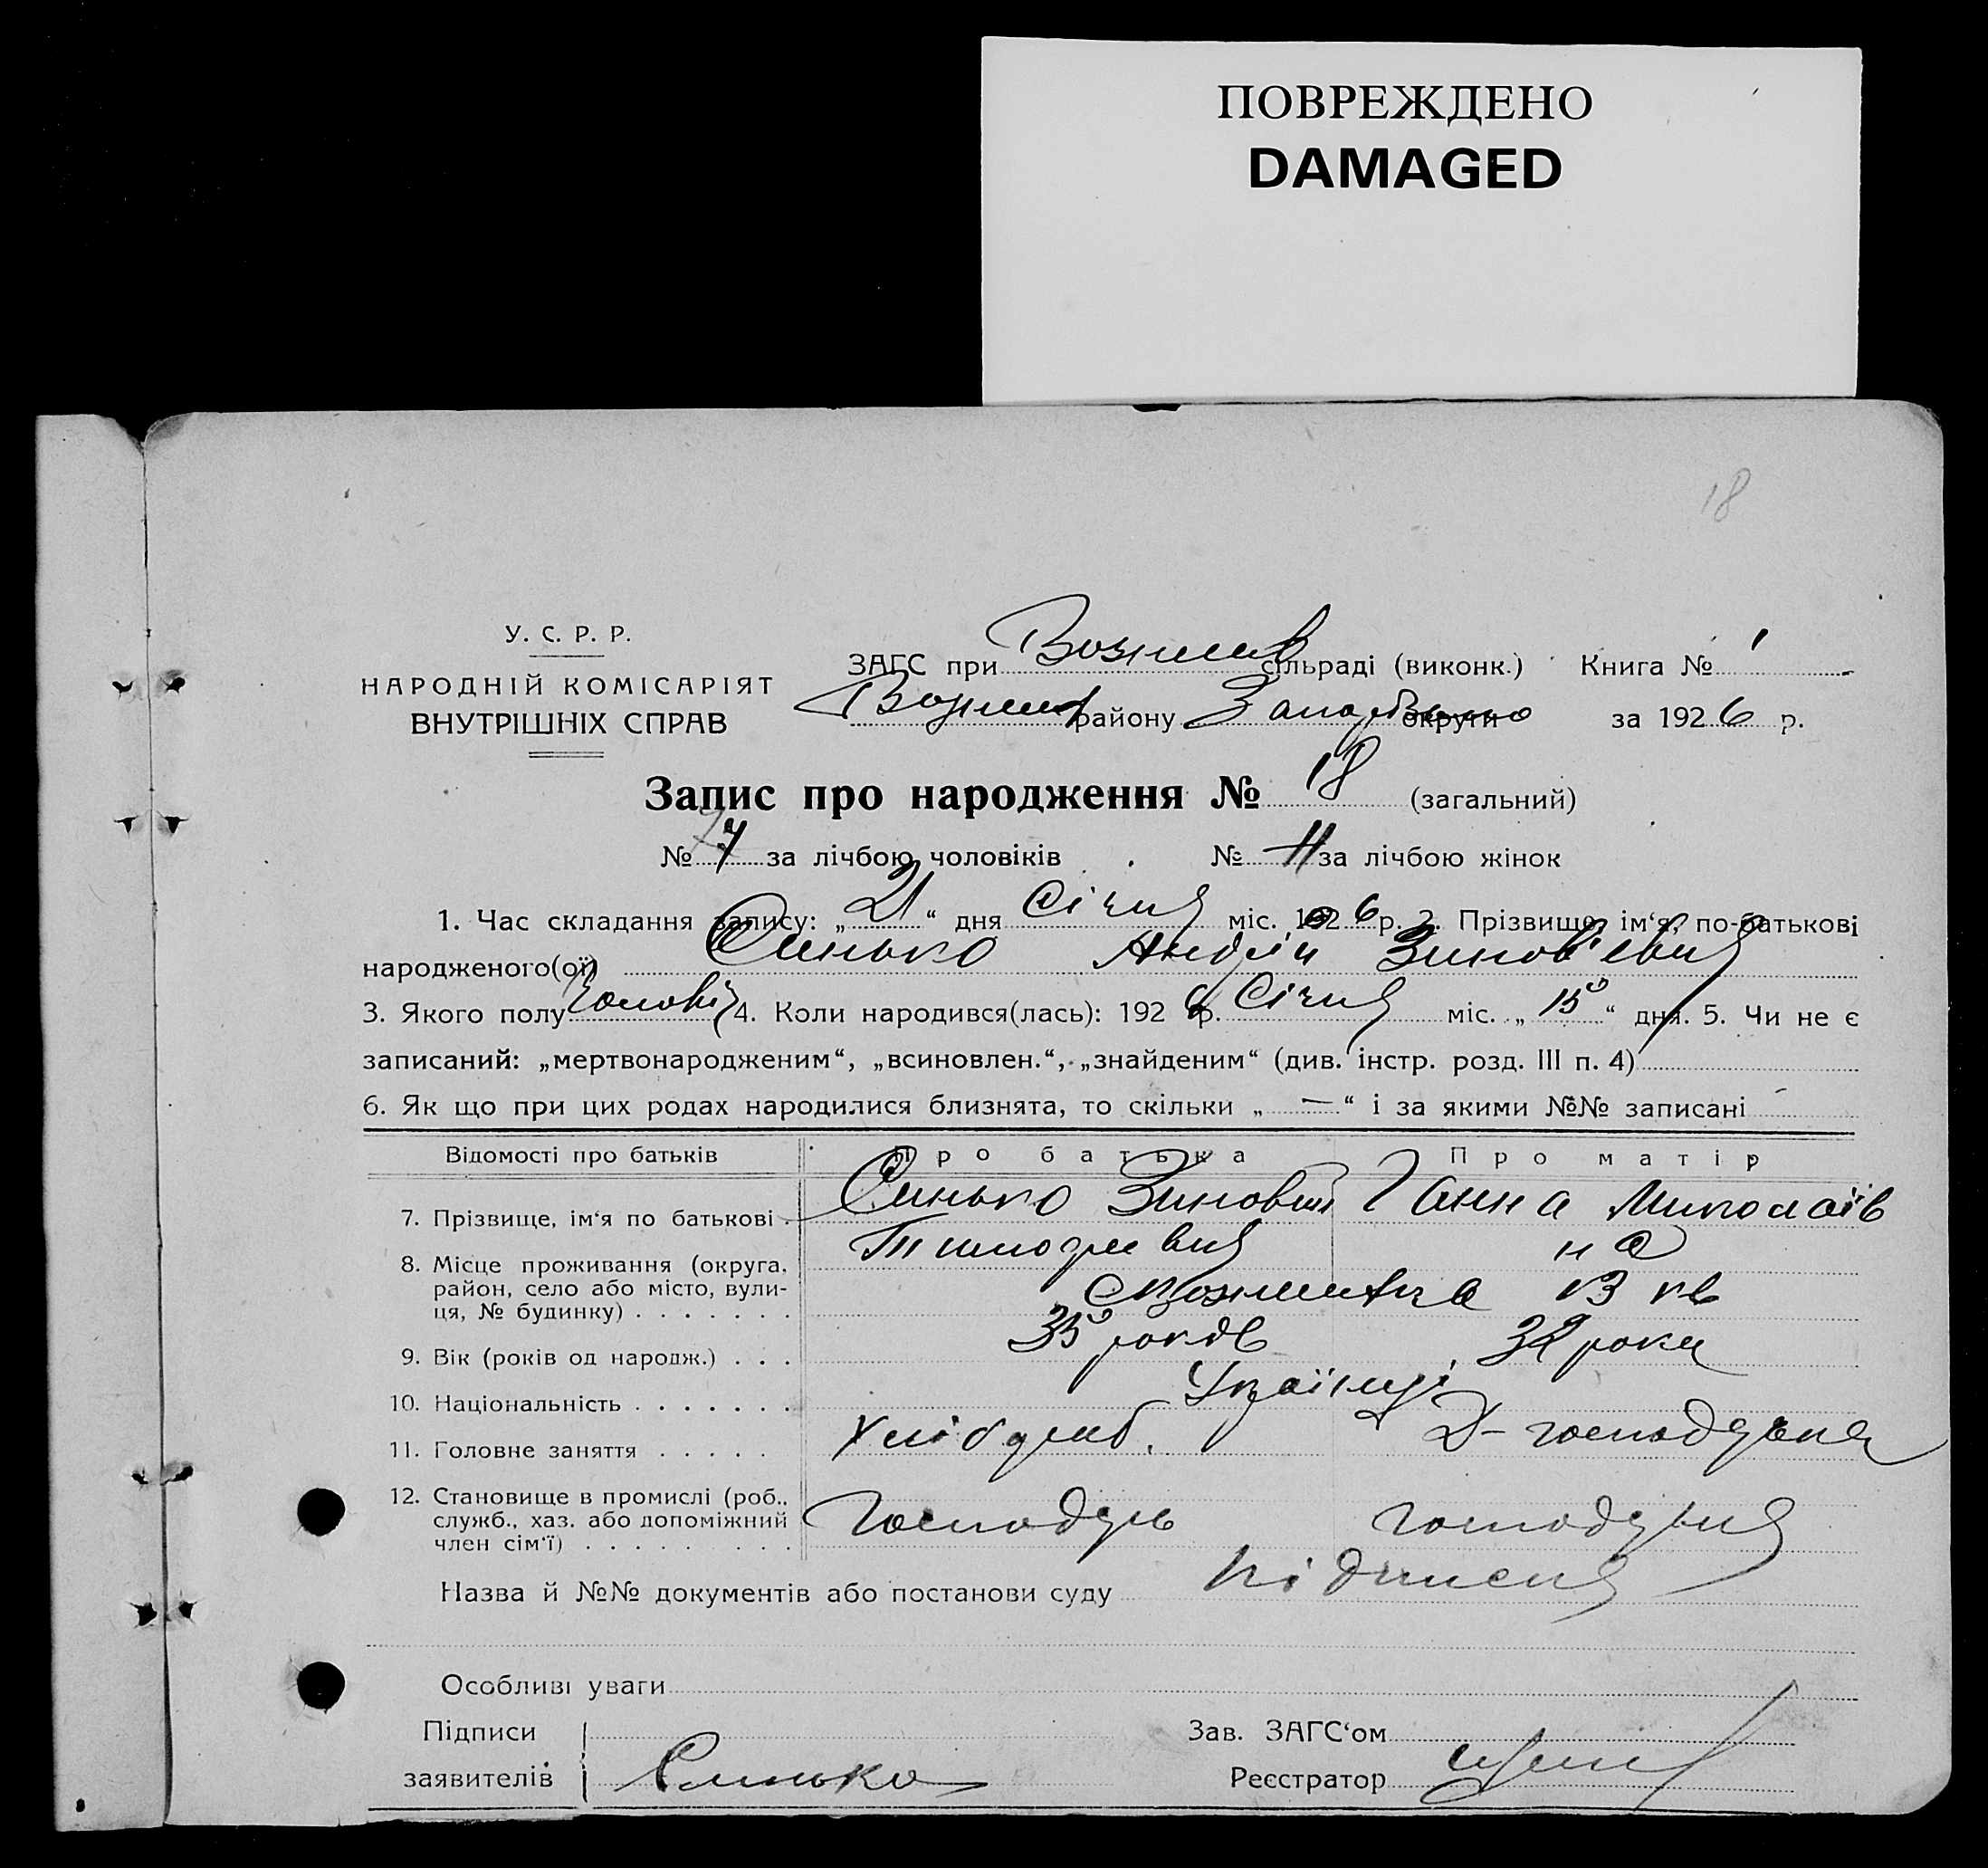 ПОВРЕЖДЕНО
DAMAGED
18
У. С. Р. Р.
НАРОДНІЙ КОМІСАРІЯТ
ВНУТРІШНІХ СПРАВ
ЗАГС при сільраді (виконк.) Книга № 1
району округи за 1926 р.
Запис про народження № 18 (загальний)
№ 7 за лічбою чоловіків № 11 за лічбою жінок
1. Час складання запису: „21“ дня Січня міс. 1926 р. 2. Прізвище, ім‘я, по-батькові
народженого(ої) Синько Андрій Зинов'евич
3. Якого полу Чолові 4. Коли народився(лась): 1926 р. Січня міс. „15“ дня. 5. Чи не є
записаний: „мертвонародженим“, „всиновлен.“, „знайденим“ (див. інстр. розд. III п. 4)
6. Як що при цих родах народилися близнята, то скільки „—“ і за якими №№ записані
Відомості про батьків Про батька Про матір
7. Прізвище, ім‘я по батькові Синько Зиновий Ганна Миколаїв
Тимофеевич на
8. Місце проживання (округа,
район, село або місто, вули-
ця, № будинку)
9. Вік (років од народж.) 35 років 32 роки
10. Національність Українці
11. Головне заняття Хлібороб. Д-господарка
12. Становище в промислі (роб.,
служб., хаз. або допоміжний
член сім‘ї) Господарь господарка
Назва й №№ документів або постанови суду підписка
Особливі уваги
Підписи
заявителів Синько
Зав. ЗАГС‘ом
Реєстратор